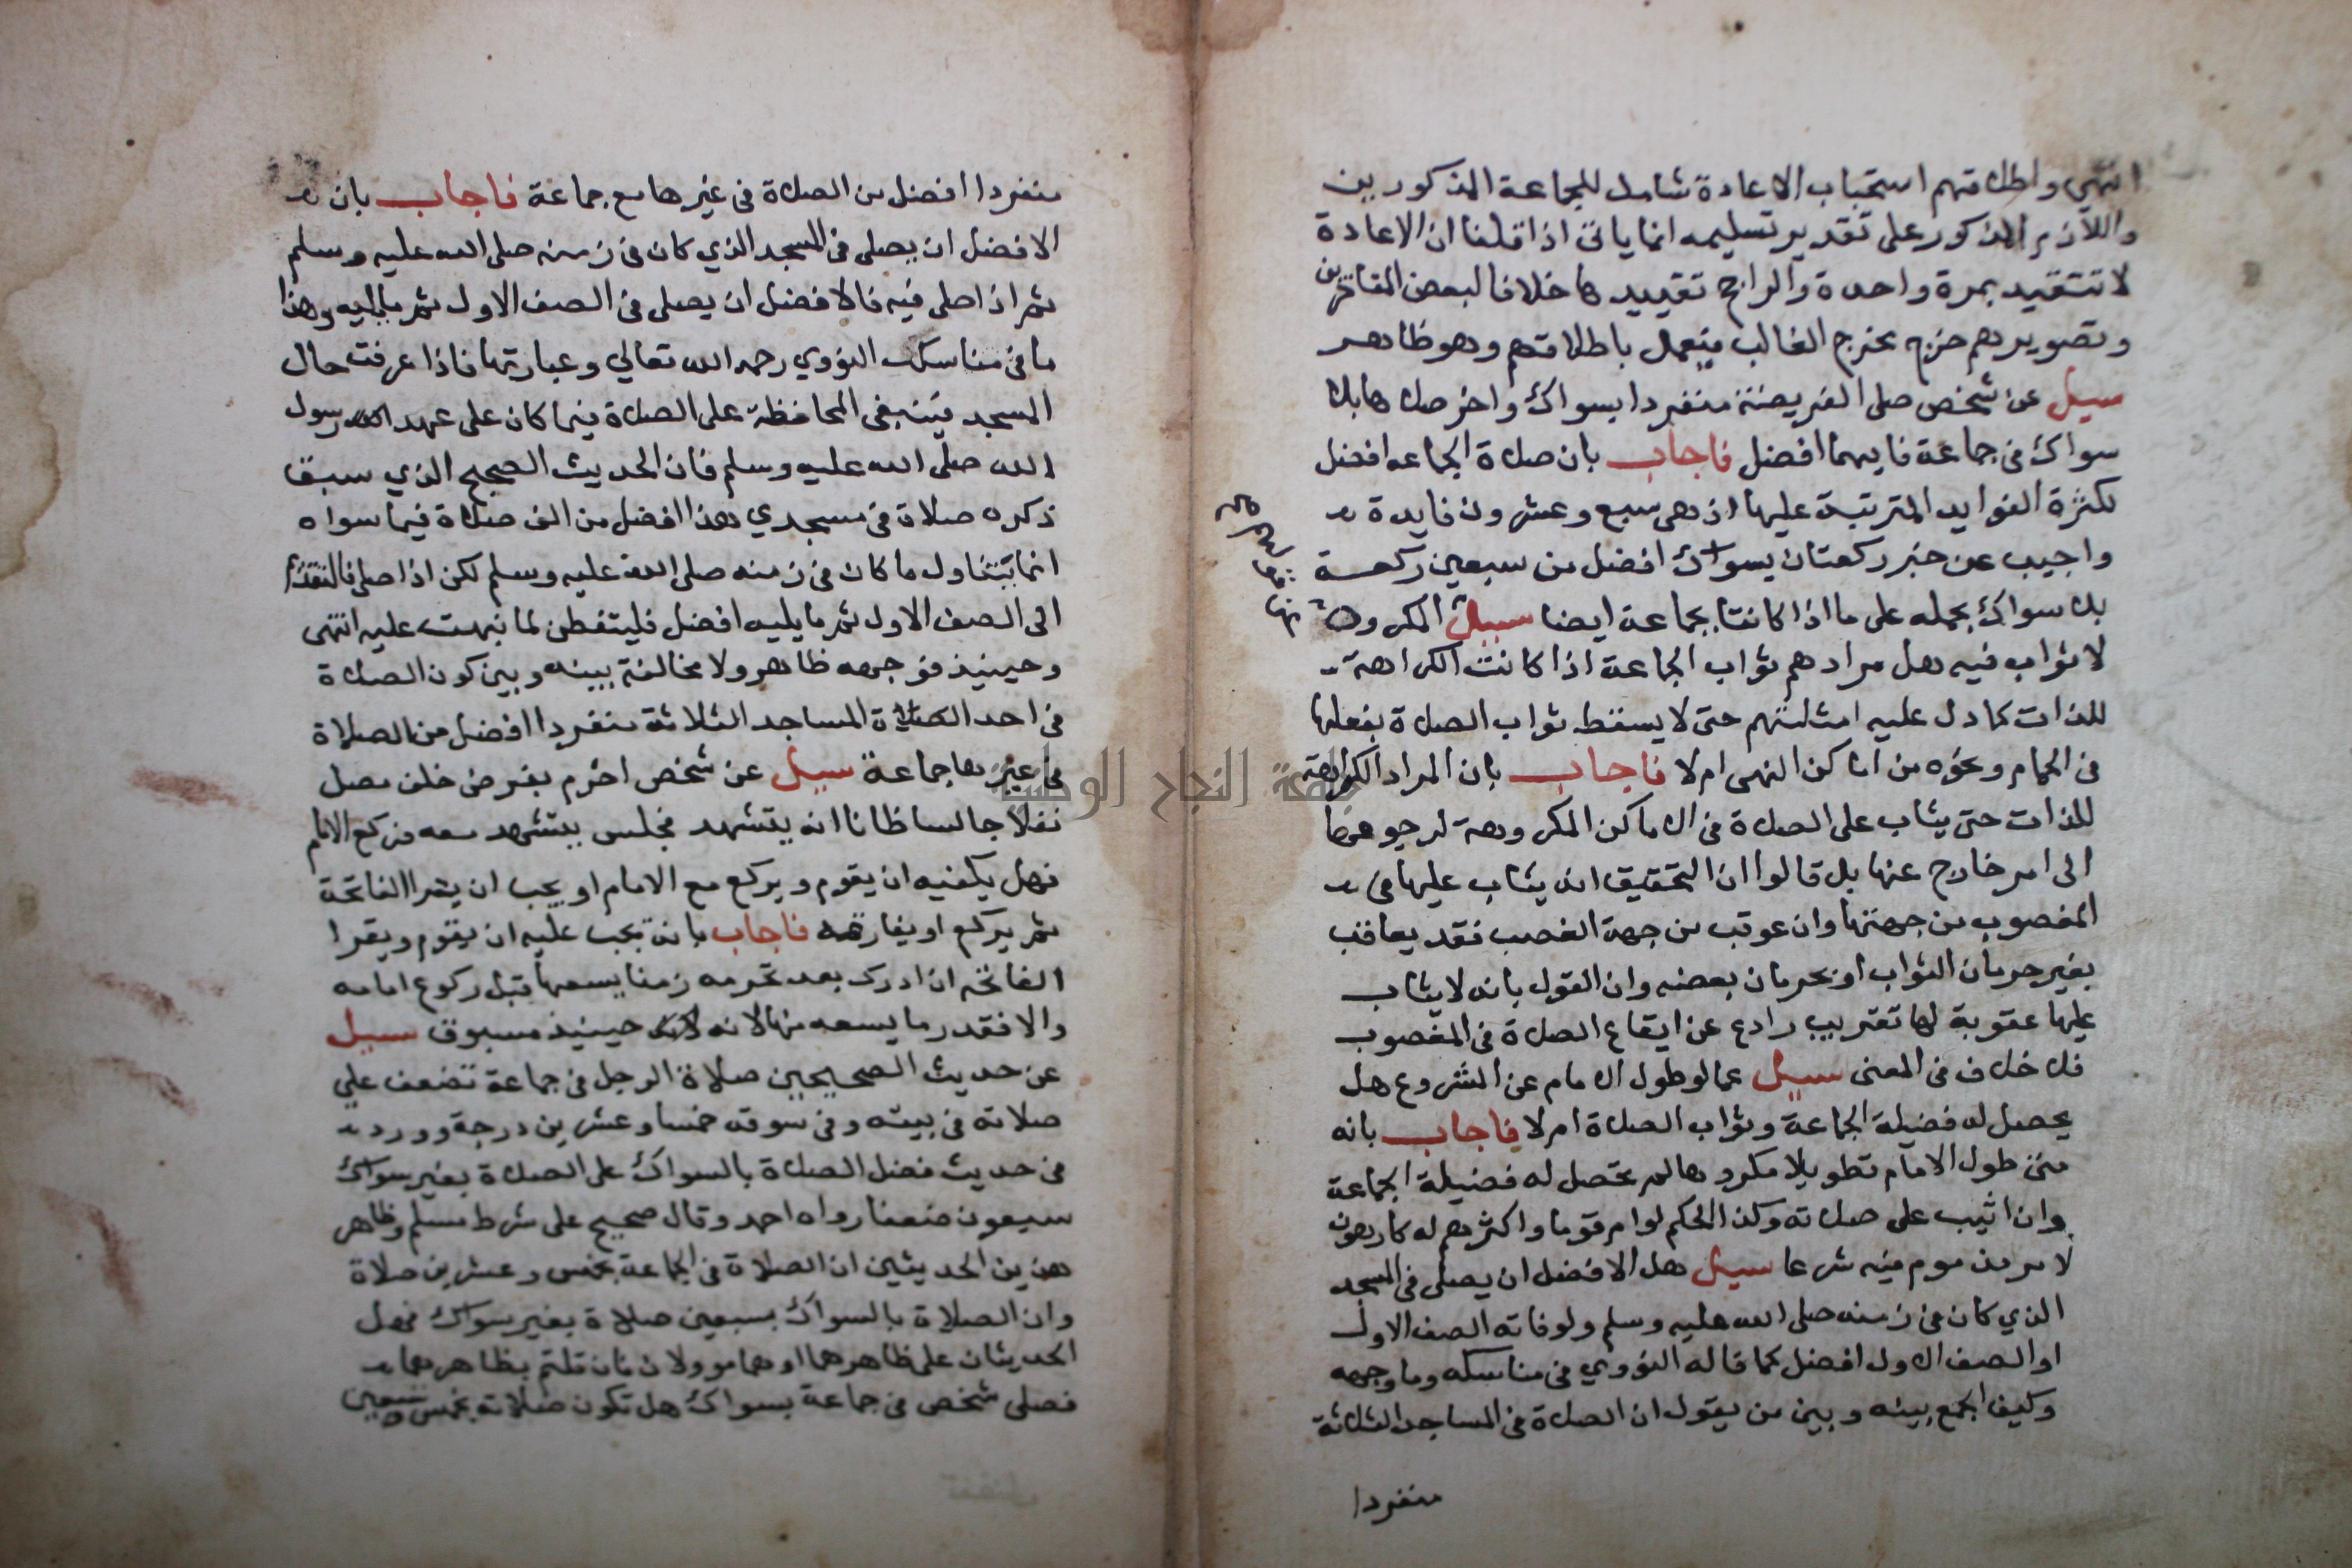 انتهى واطلاقهم استحباب الاعادة شامل للجماعة المذكورين
واللازم المذكور على تقدير تسليمه انما ياتى اذا قلنا ان الاعادة
لا تتقيد بمرة واحدة والراجح تقييدها خلافا لبعض المتاخرين
وتصويرهم خرج مخرج الغالب فيعمل باطلاقهم وهو ظاهر
سيل عن شخص صلى الفريضة منفردا بسواك واخر صلاها بلا
سواك فى جماعة فايهما افضل فاجاب بان صلاة الجماعه افضل
لكثرة الفوايد المترتبة عليها اذ هى سبع وعشرون فايدة
واجيب عن خبر ركعتان بسواك افضل من سبعين ركعة
بلا سواك بحمله على ما اذا كانتا بجماعة ايضا سيل المكروه
لا ثواب فيه هل مرادهم ثواب الجماعة اذا كانت الكراهة
للذات كما دل عليه امثلتهم حتى لا يسقط ثواب الصلاة بفعلها
فى الحمام ونحوه من اماكن النهى ام لا فاجاب بان المراد الكراهة
للذات حتى يثاب على الصلاة فى الاماكن المكروهة لرجوعها
الى امر خارج عنها بل قالوا ان التحقيق انه يثاب عليها فى
المغصوب من جهتها وان عوقب من جهة الغصب فقد يعاقب
بغير حرمان الثواب او بحرمان بعضه وان القول بانه لا يثاب
عليها عقوبة لها تقريب رادع عن ايقاع الصلاة فى المغصوب
فلا خلاف فى المعنى سيل عما لو طول الامام عن المشروع هل
يحصل له فضيلة الجماعة وثواب الصلاة ام لا فاجاب بانه
متى طول الامام تطويلا مكروها لم تحصل له فضيلة الجماعة
وان اثيب على صلاته وكذا الحكم لو ام قوما واكثرهم له كارهون
لامر مذموم فيه شرعا سيل هل الافضل ان يصلى فى المسجد
الذي كان فى زمنه صلى الله عليه وسلم ولو فاته الصف الاول
او الصف الاول افضل كما قاله النووي فى مناسكه وما وجهه
وكيف الجمع بينه وبين من يقول ان الصلاة فى المساجد الثلاثة
منفردا
منفردا افضل من الصلاة فى غيرها مع جماعة فاجاب بان
الافضل ان يصلى فى المسجد الذي كان فى زمنه صلى الله عليه وسلم
ثم اذا صلى فيه فالافضل ان يصلى فى الصف الاول ثم ما يليه وهذا
ما فى مناسك النووي رحمه الله تعالي وعبارتها فاذا عرفت حال
المسجد فينبغى المحافظة على الصلاة فيما كان على عهد رسول
الله صلى الله عليه وسلم فان الحديث الصحيح الذي سبق
ذكره صلاة فى مسجدي هذا افضل من الف صلاة فيما سواه
انما يتناول ما كان فى زمنه صلى الله عليه وسلم لكن اذا صلى فالتقدم
الى الصف الاول ثم ما يليه افضل فليتفطن لما نبهت عليه انتهى
وحينيذ فوجهه ظاهر ولا مخالفة بينه وبين كون الصلاة
فى احد المساجد الثلاثة منفردا افضل من الصلاة
فى غيرها جماعة سيل عن شخص احرم بفرض خلف مصل
نفلا جالسا ظانا انه يتشهد فجلس يتشهد معه فركع الامام
فهل يكفيه ان يقوم ويركع مع الامام او يجب ان يقرا الفاتحة
ثم يركع او يفارقه فاجاب بانه يجب عليه ان يقوم ويقرا
الفاتحه ان ادرك بعد تحرمه زمنا يسعها قبل ركوع امامه
والا فقدر ما يسعه منها لانه حينيذ مسبوق سيل
عن حديث الصحيحين صلاة الرجل فى جماعة تضعف علي
صلاته فى بيته وفى سوقه خمسا وعشرين درجة وورد
فى حديث فضل الصلاة بالسواك على الصلاة بغير سواك
سبعون ضعفا رواه احمد وقال صحيح على شرط مسلم وظاهر
هذين الحديثين ان الصلاة فى الجماعة بخمس وعشرين صلاة
وان الصلاة بالسواك بسبعين صلاة بغير سواك فهل
الحديثان على ظاهرهما او هما موولان فان قلتم بظاهرهما
فصلى شخص فى جماعة بسواك هل تكون صلاته بخمس وتسعين
جامعة النجاح الوطنية